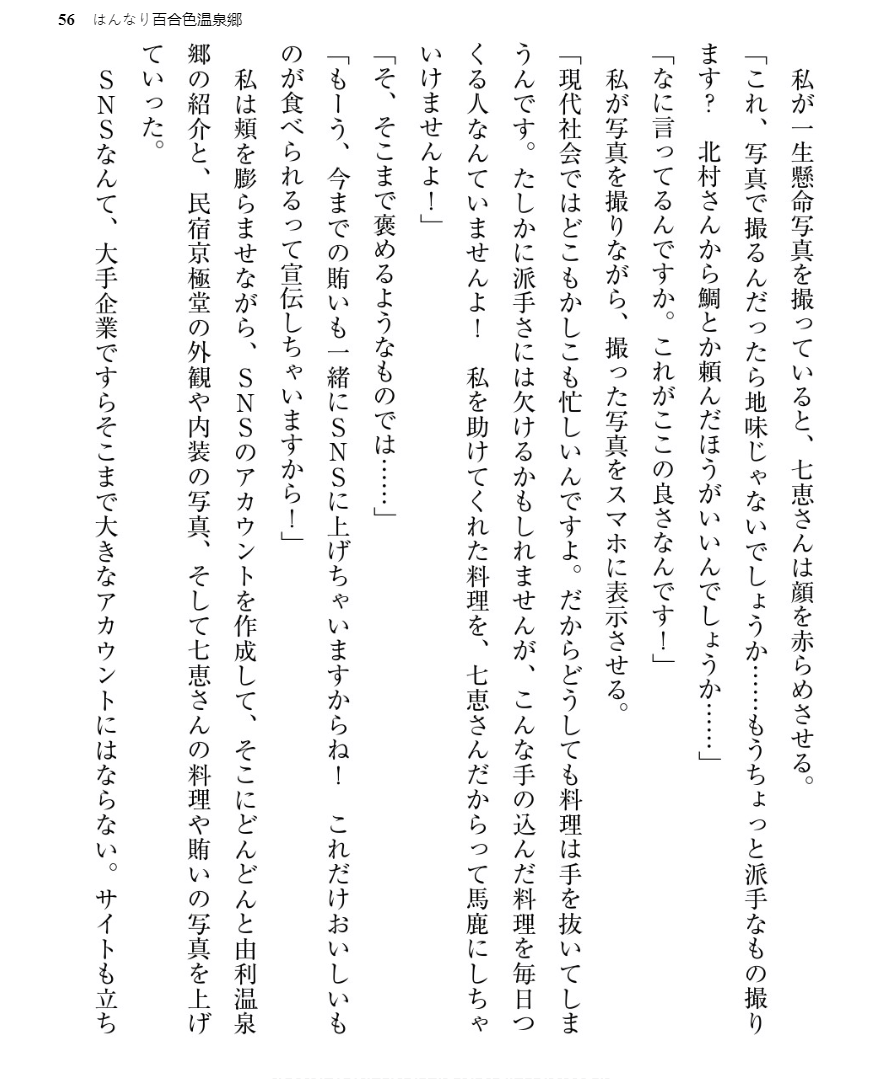 56 はんなり百合色温泉郷
　私が一生懸命写真を撮っていると、七恵さんは顔を赤らめさせる。
「これ、写真で撮るんだったら地味じゃないでしょうか……もうちょっと派手なもの撮り
ます？　北村さんから鯛とか頼んだほうがいいんでしょうか……」
「なに言ってるんですか。これがここの良さなんです！」
　私が写真を撮りながら、撮った写真をスマホに表示させる。
「現代社会ではどこもかしこも忙しいんですよ。だからどうしても料理は手を抜いてしま
うんです。たしかに派手さには欠けるかもしれませんが、こんな手の込んだ料理を毎日つ
くる人なんていませんよ！　私を助けてくれた料理を、七恵さんだからって馬鹿にしちゃ
いけませんよ！」
「そ、そこまで褒めるようなものでは……」
「もーう、今までの賄いも一緒にＳＮＳに上げちゃいますからね！　これだけおいしいも
のが食べられるって宣伝しちゃいますから！」
　私は頬を膨らませながら、ＳＮＳのアカウントを作成して、そこにどんどんと由利温泉
郷の紹介と、民宿京極堂の外観や内装の写真、そして七恵さんの料理や賄いの写真を上げ
ていった。
　ＳＮＳなんて、大手企業ですらそこまで大きなアカウントにはならない。サイトも立ち